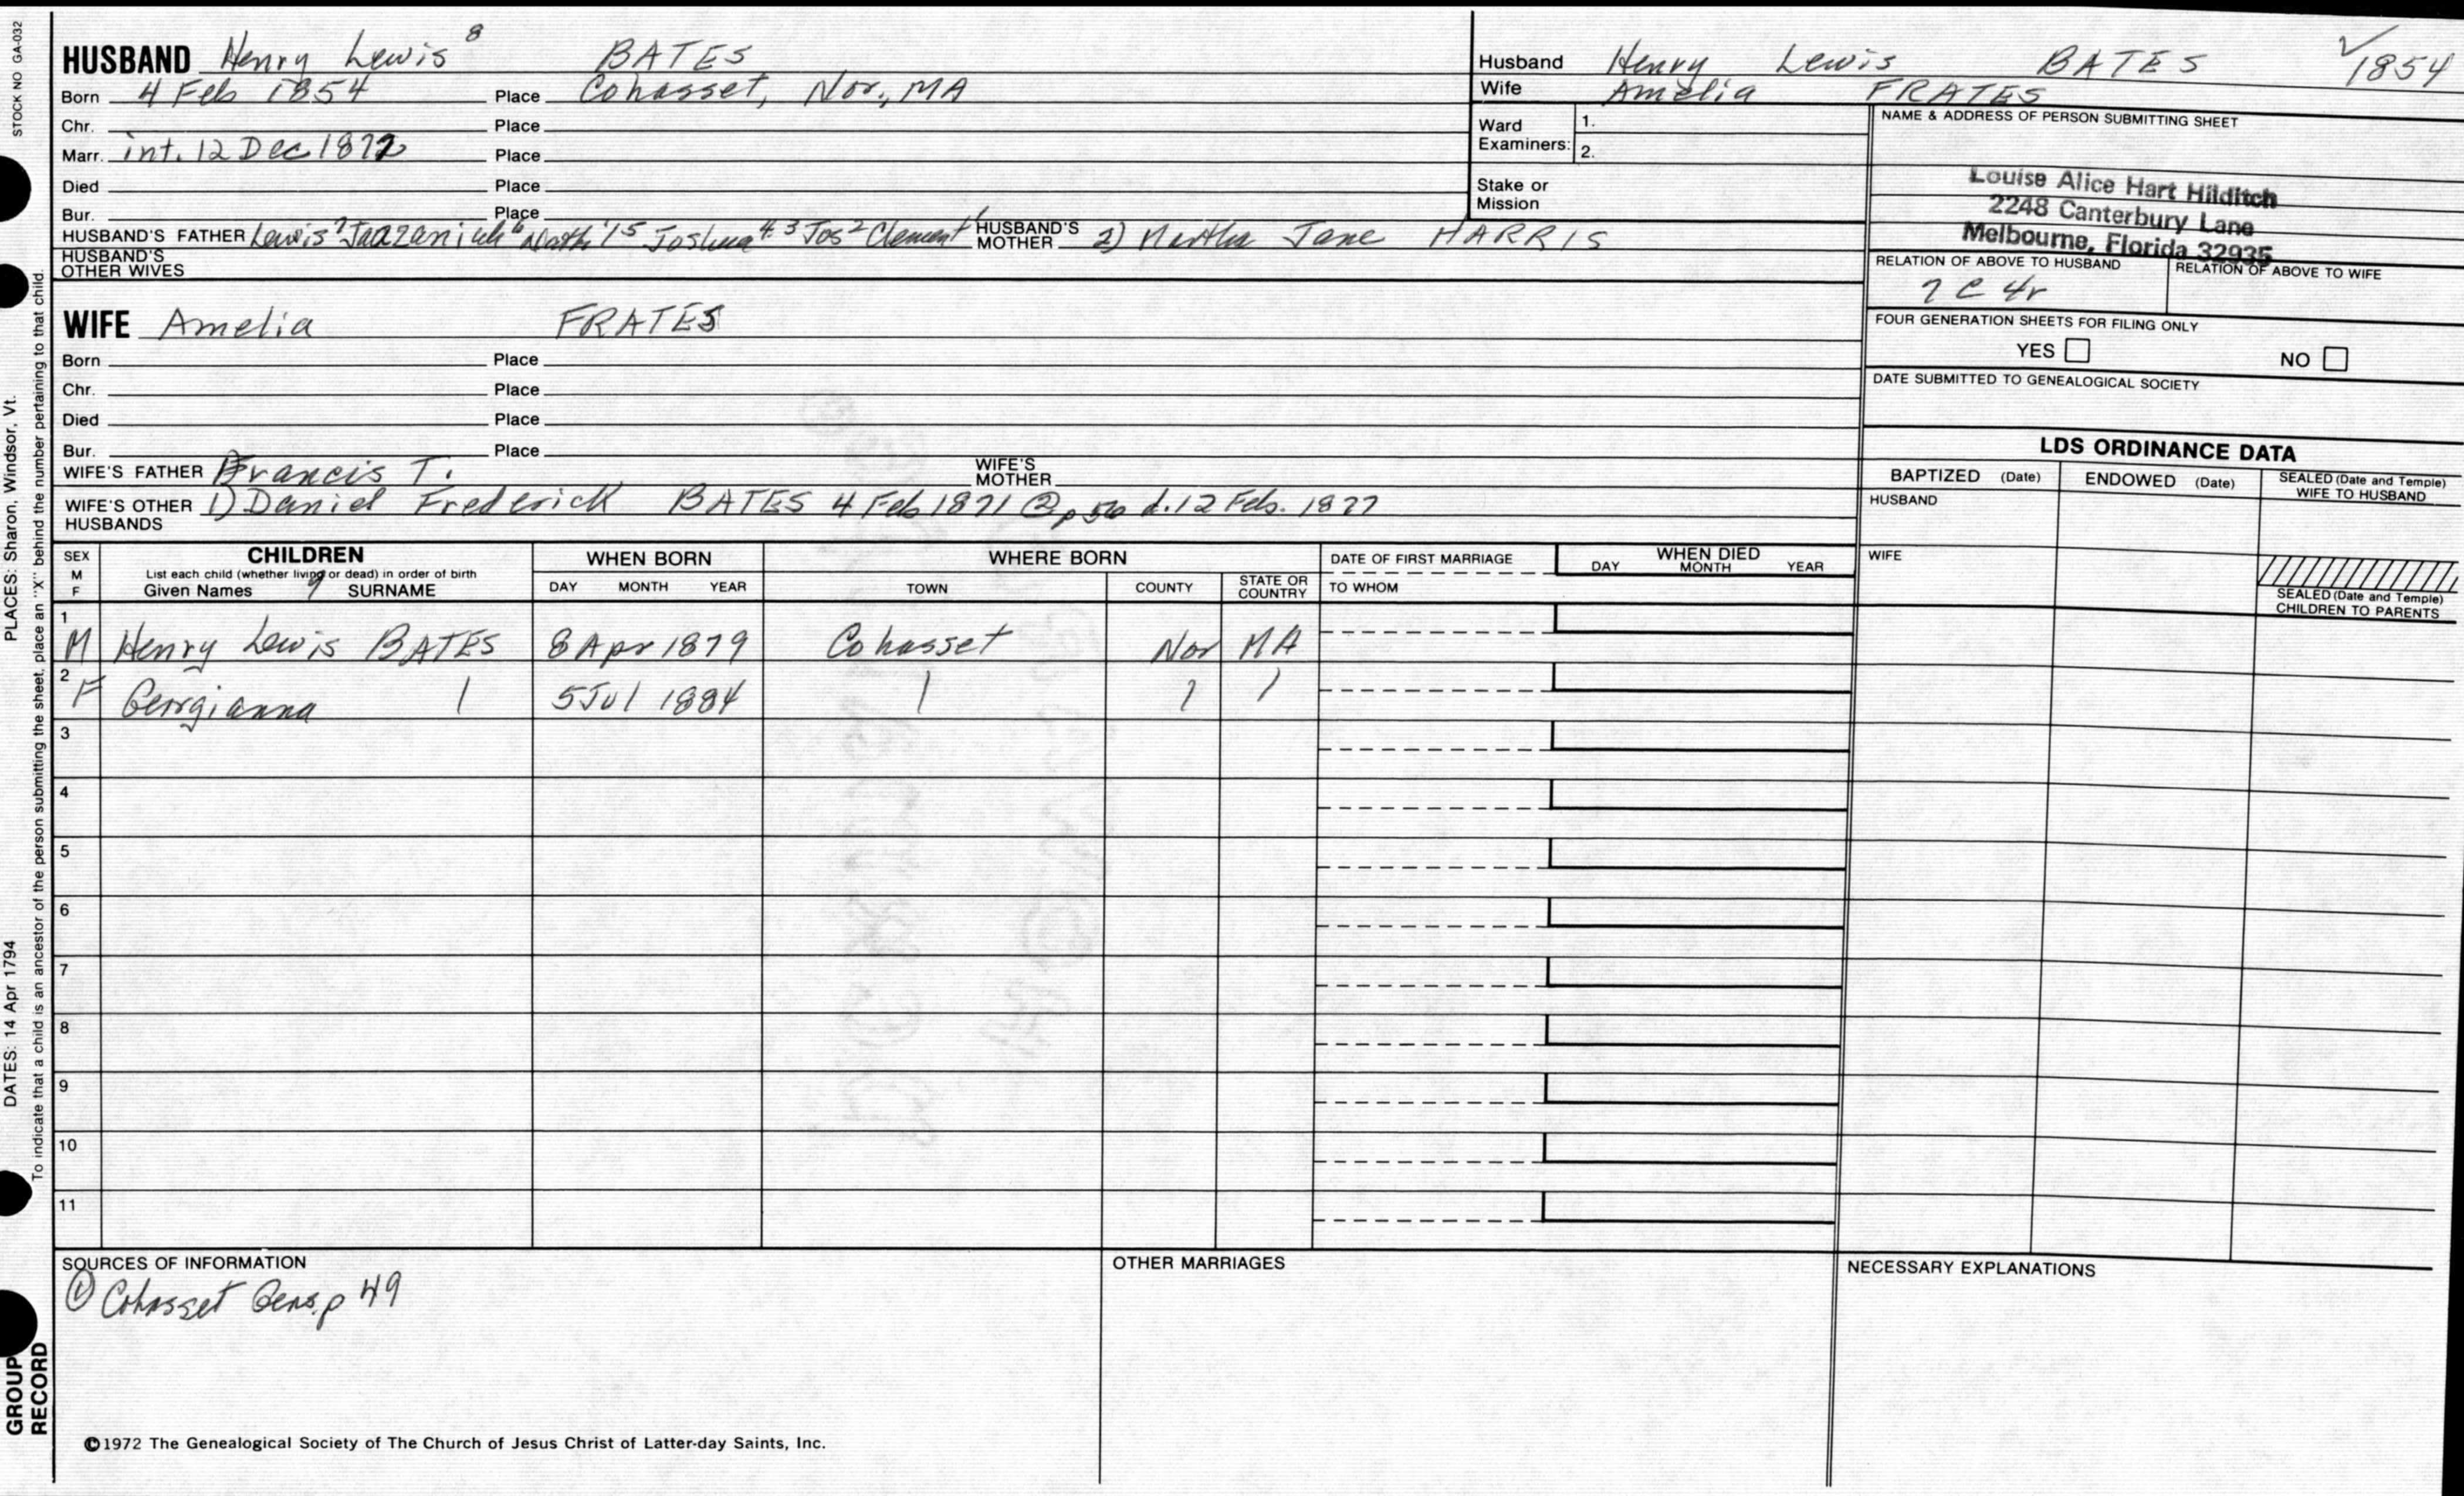 STOCK NO GA-032
PLACES: Sharon, Windsor, Vt.
DATES: 14 Apr 1794
To indicate that a child is an ancestor of the person submitting the sheet, place an "X" behind the number pertaining to that child.
GROUP
RECORD
HUSBAND Henry Lewis 8 BATES
Born 4 Feb 1854 Place Cohasset, Nor., MA
Chr. Place
Marr. int. 12 Dec Place
Died Place
Bur. Place
HUSBAND'S FATHER Lewis 7 Jaazaniah 6 5 Joshua 4 3 Jos 2 Clement 1 HUSBAND'S MOTHER 2) Martha Jane HARRIS
HUSBAND'S
OTHER WIVES
Husband Henry Lewis BATES 1854
Wife Amelia FRATES
Ward Examiners: 1.
2.
Stake or
Mission
NAME & ADDRESS OF PERSON SUBMITTING SHEET
Louise Alice Hart Hilditch
2248 Canterbury Lane
Melbourne, Florida 32935
RELATION OF ABOVE TO HUSBAND RELATION OF ABOVE TO WIFE
7 C 4r
FOUR GENERATION SHEETS FOR FILING ONLY
YES NO
DATE SUBMITTED TO GENEALOGICAL SOCIETY
WIFE Amelia FRATES
Born Place
Chr. Place
Died Place
Bur. Place
WIFE'S FATHER Francis T. WIFE'S MOTHER
WIFE'S OTHER HUSBANDS 1) Daniel Frederick BATES 4 Feb 1871 @ p 50 d. 12 Feb. 1877
LDS ORDINANCE DATA
BAPTIZED (Date) ENDOWED (Date) SEALED (Date and Temple) WIFE TO HUSBAND
HUSBAND
WIFE
SEALED (Date and Temple)
CHILDREN TO PARENTS
SEX M F CHILDREN WHEN BORN WHERE BORN DATE OF FIRST MARRIAGE WHEN DIED
List each child (whether living or dead) in order of birth
Given Names 9 SURNAME DAY MONTH YEAR TOWN COUNTY STATE OR COUNTRY TO WHOM DAY MONTH YEAR
1 M Henry Lewis BATES 8 Apr 1879 Cohasset Nor MA
2 F Georgianna | 5 Jul 1884 | | |
3
4
5
6
7
8
9
10
11
SOURCES OF INFORMATION OTHER MARRIAGES NECESSARY EXPLANATIONS
① Cohasset Gens. p 49
©1972 The Genealogical Society of The Church of Jesus Christ of Latter-day Saints, Inc.